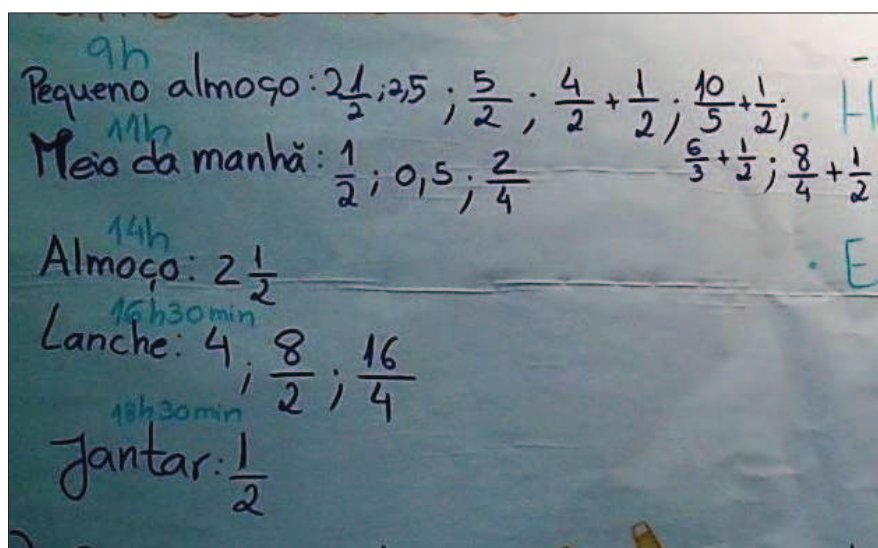 9h
Pequeno almoço: 2 1/2 ; 2,5 ; 5/2 ; 4/2 + 1/2 ; 10/5 + 1/2 ;
6/3 + 1/2 ; 8/4 + 1/2
11h
Meio da manhã: 1/2 ; 0,5 ; 2/4
14h
Almoço: 2 1/2
16h30min
Lanche: 4 ; 8/2 ; 16/4
18h30min
Jantar: 1/2